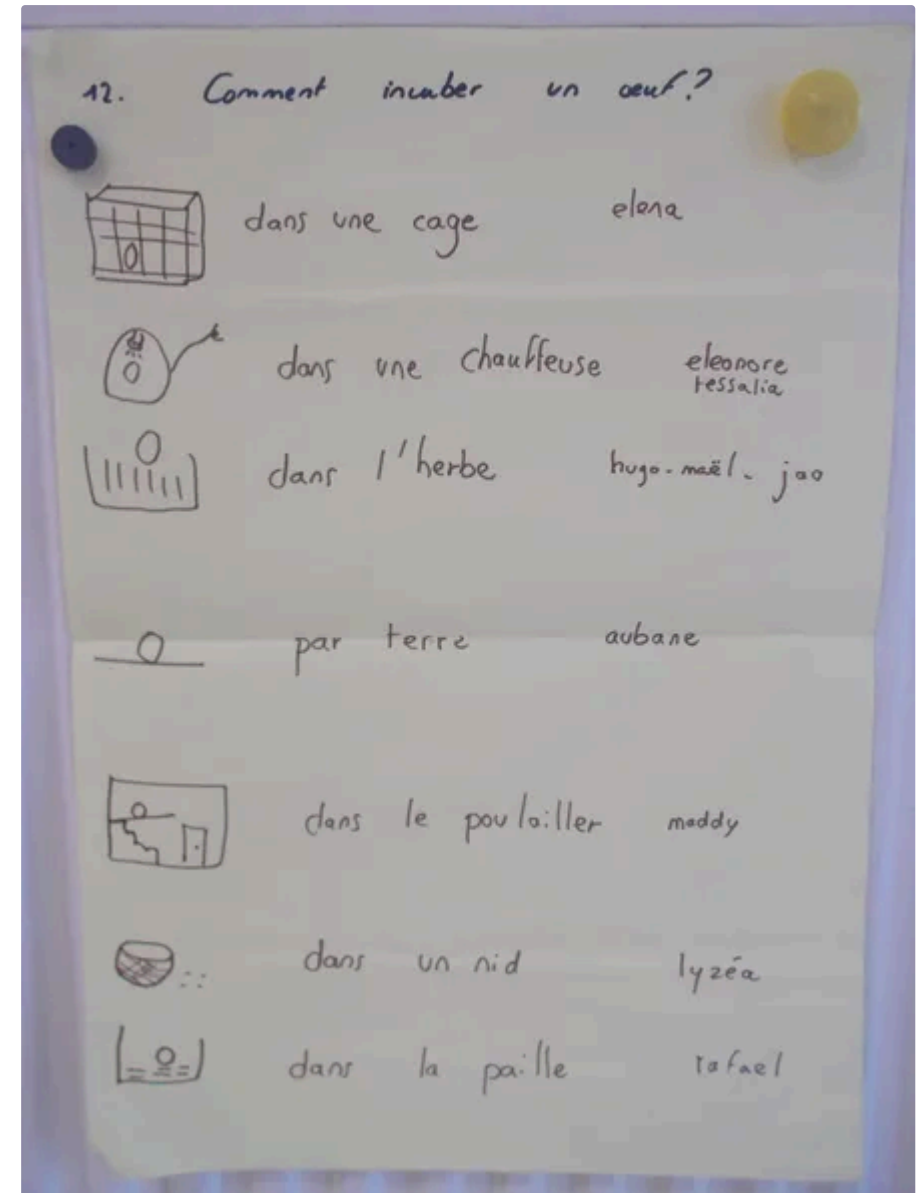 12. Comment incuber un oeuf?
dans une cage elena
dans une chauffeuse eleonore
tessalia
dans l'herbe hugo-maël-jao
par terre aubane
dans le poulailler maddy
dans un nid lyzéa
dans la paille rafael